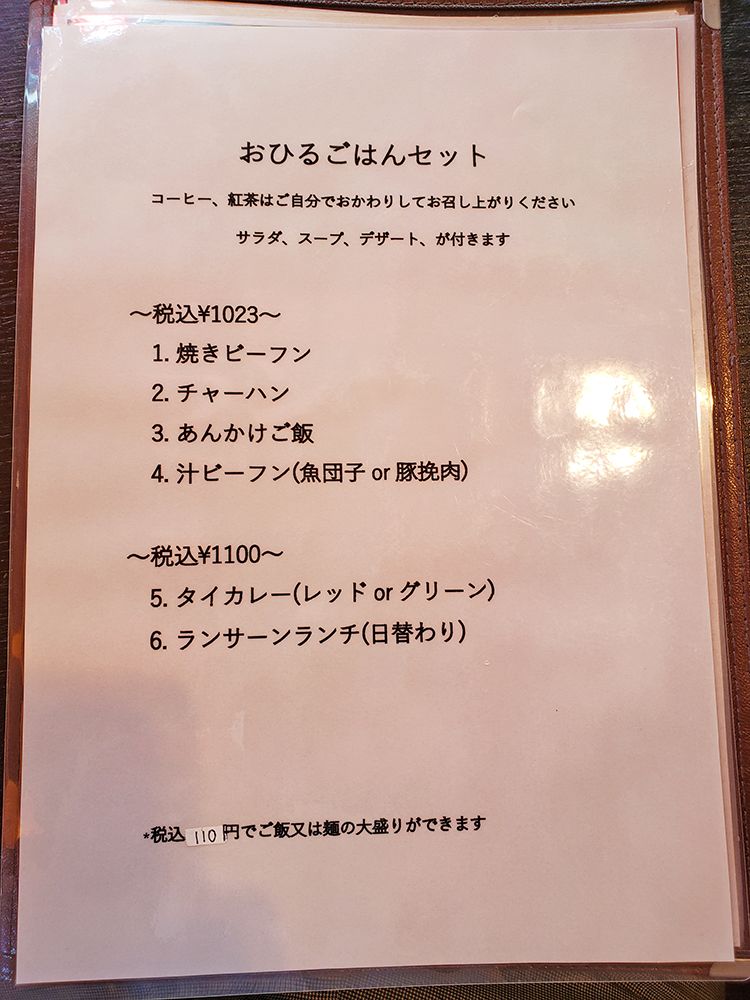 おひるごはんセット
コーヒー、紅茶はご自分でおかわりしてお召し上がりください
サラダ、スープ、デザート、が付きます
～税込¥1023～
1. 焼きビーフン
2. チャーハン
3. あんかけご飯
4. 汁ビーフン(魚団子 or 豚挽肉)
～税込¥1100～
5. タイカレー(レッド or グリーン)
6. ランサーンランチ(日替わり)
*税込 110 円でご飯又は麺の大盛りができます